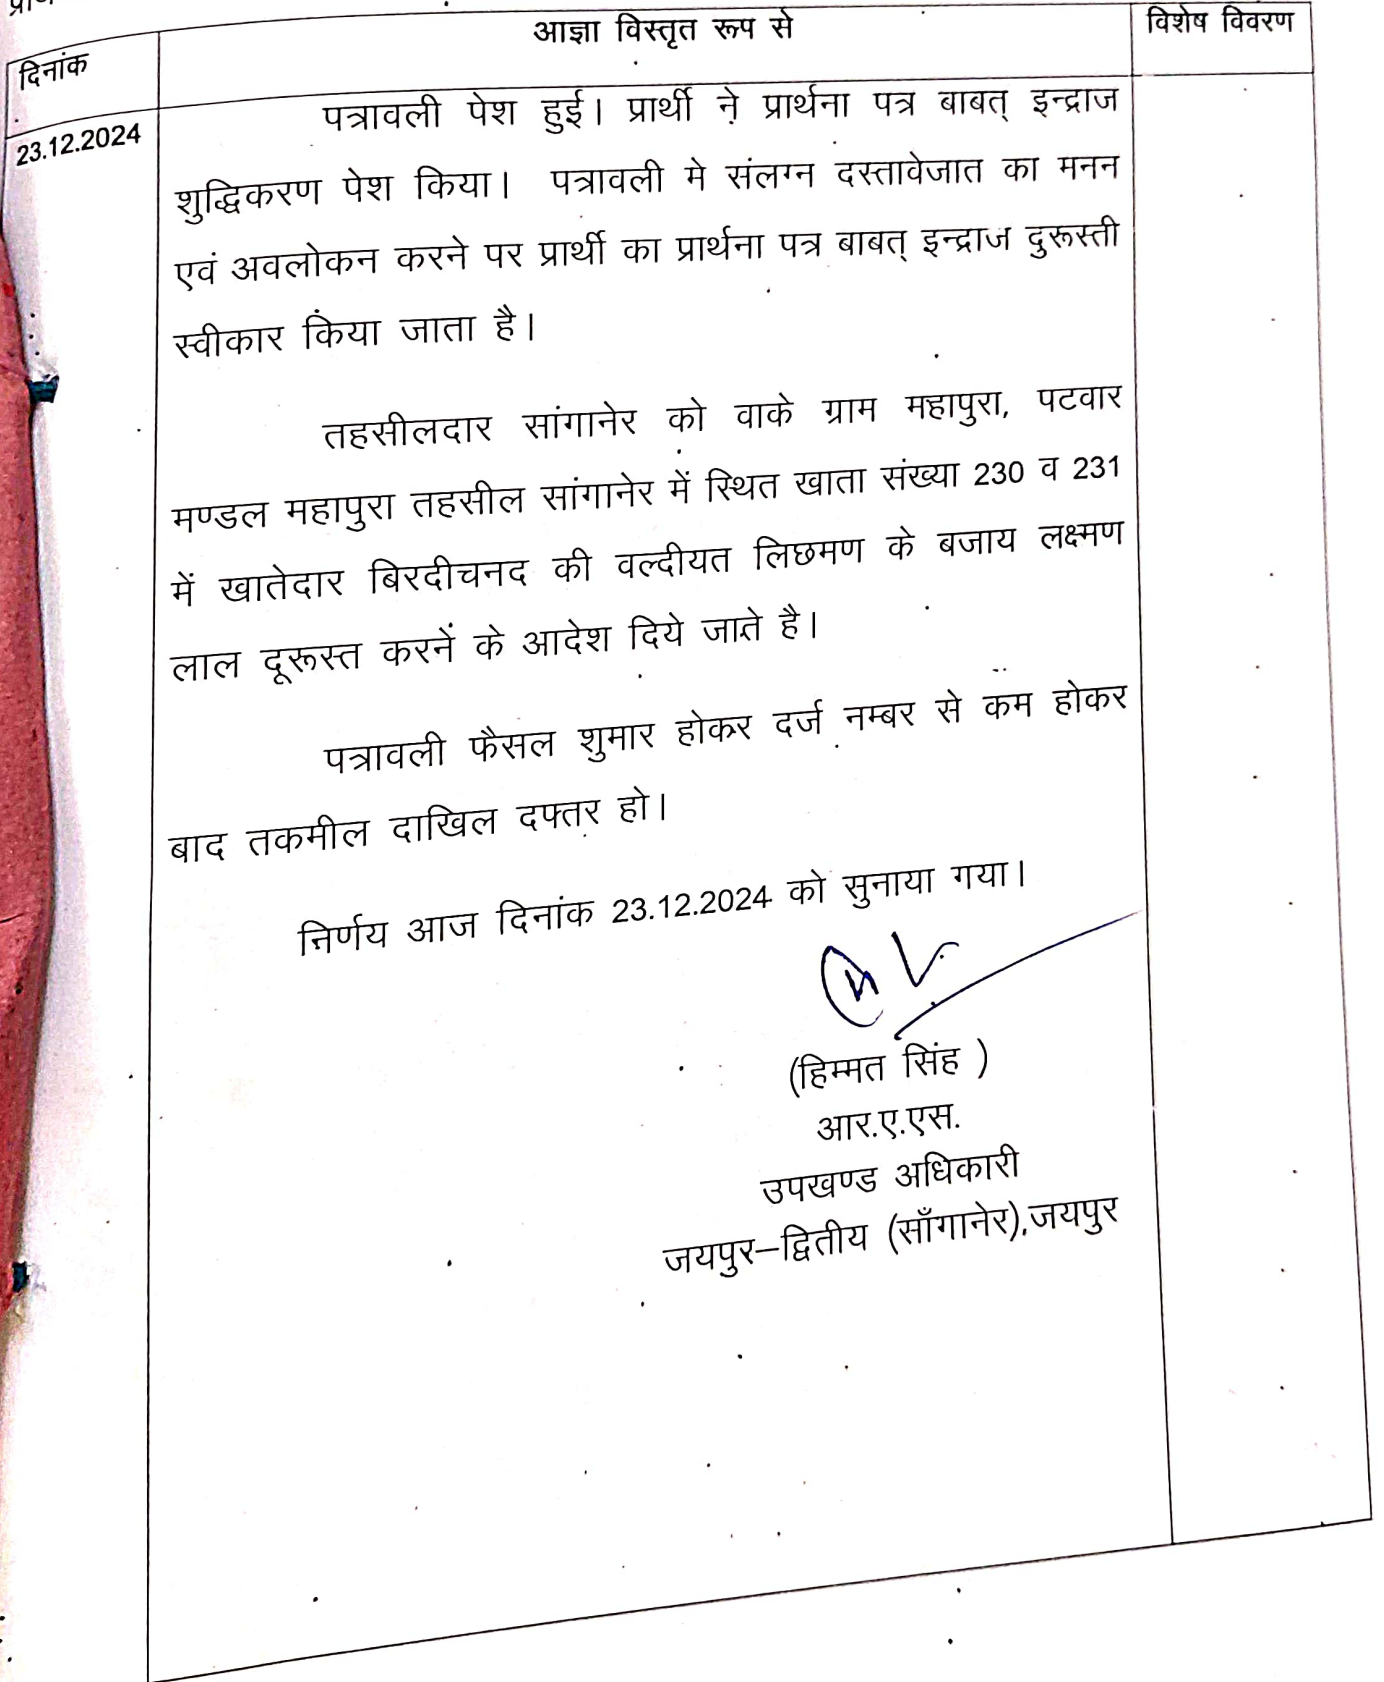 दिनांक
आज्ञा विस्तृत रूप से
विशेष विवरण
23.12.2024
पत्रावली पेश हुई। प्रार्थी ने प्रार्थना पत्र बाबत् इन्द्राज
शुद्धिकरण पेश किया। पत्रावली मे संलग्न दस्तावेजात का मनन
एवं अवलोकन करने पर प्रार्थी का प्रार्थना पत्र बाबत् इन्द्राज दुरूस्ती
स्वीकार किया जाता है।
तहसीलदार सांगानेर को वाके ग्राम महापुरा, पटवार
मण्डल महापुरा तहसील सांगानेर में स्थित खाता संख्या 230 व 231
में खातेदार बिरदीचनद की वल्दीयत लिछमण के बजाय लक्ष्मण
लाल दूरूस्त करनें के आदेश दिये जाते है।
पत्रावली फैसल शुमार होकर दर्ज नम्बर से कम होकर
बाद तकमील दाखिल दफ्तर हो।
निर्णय आज दिनांक 23.12.2024 को सुनाया गया।
(हिम्मत सिंह )
आर.ए.एस.
उपखण्ड अधिकारी
जयपुर–द्वितीय (साँगानेर),जयपुर